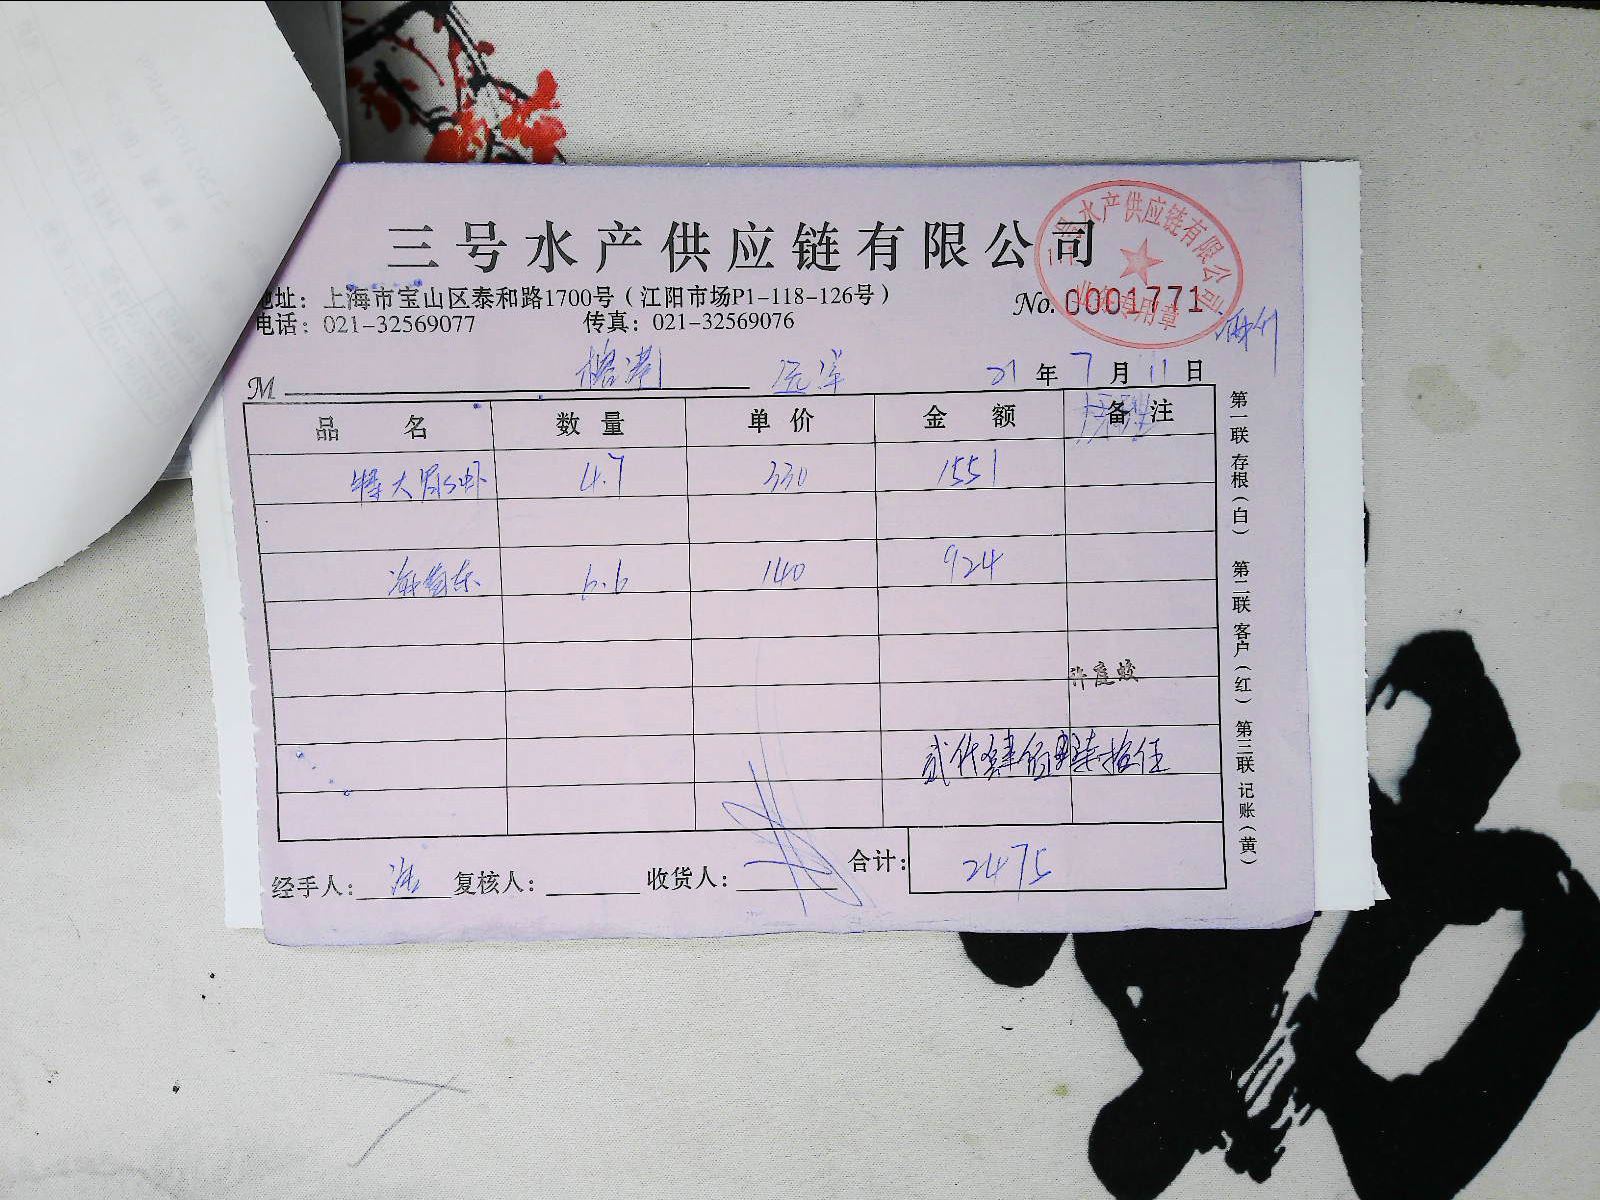 三号水产供应链有限公司
水产供应链有限公司
业务专用章
地址：上海市宝山区泰和路1700号（江阳市场P1-118-126号）
No. 0001771
电话：021-32569077 传真：021-32569076
M 榕港 21年7月11日
品名 数量 单价 金额 备注
特大 虾 4.7 330 1551
6.6 140 924
许庭蛟
贰仟肆佰柒拾伍
合计： 2475
经手人： 复核人： 收货人：
第一联 存根（白） 第二联 客户（红） 第三联 记账（黄）